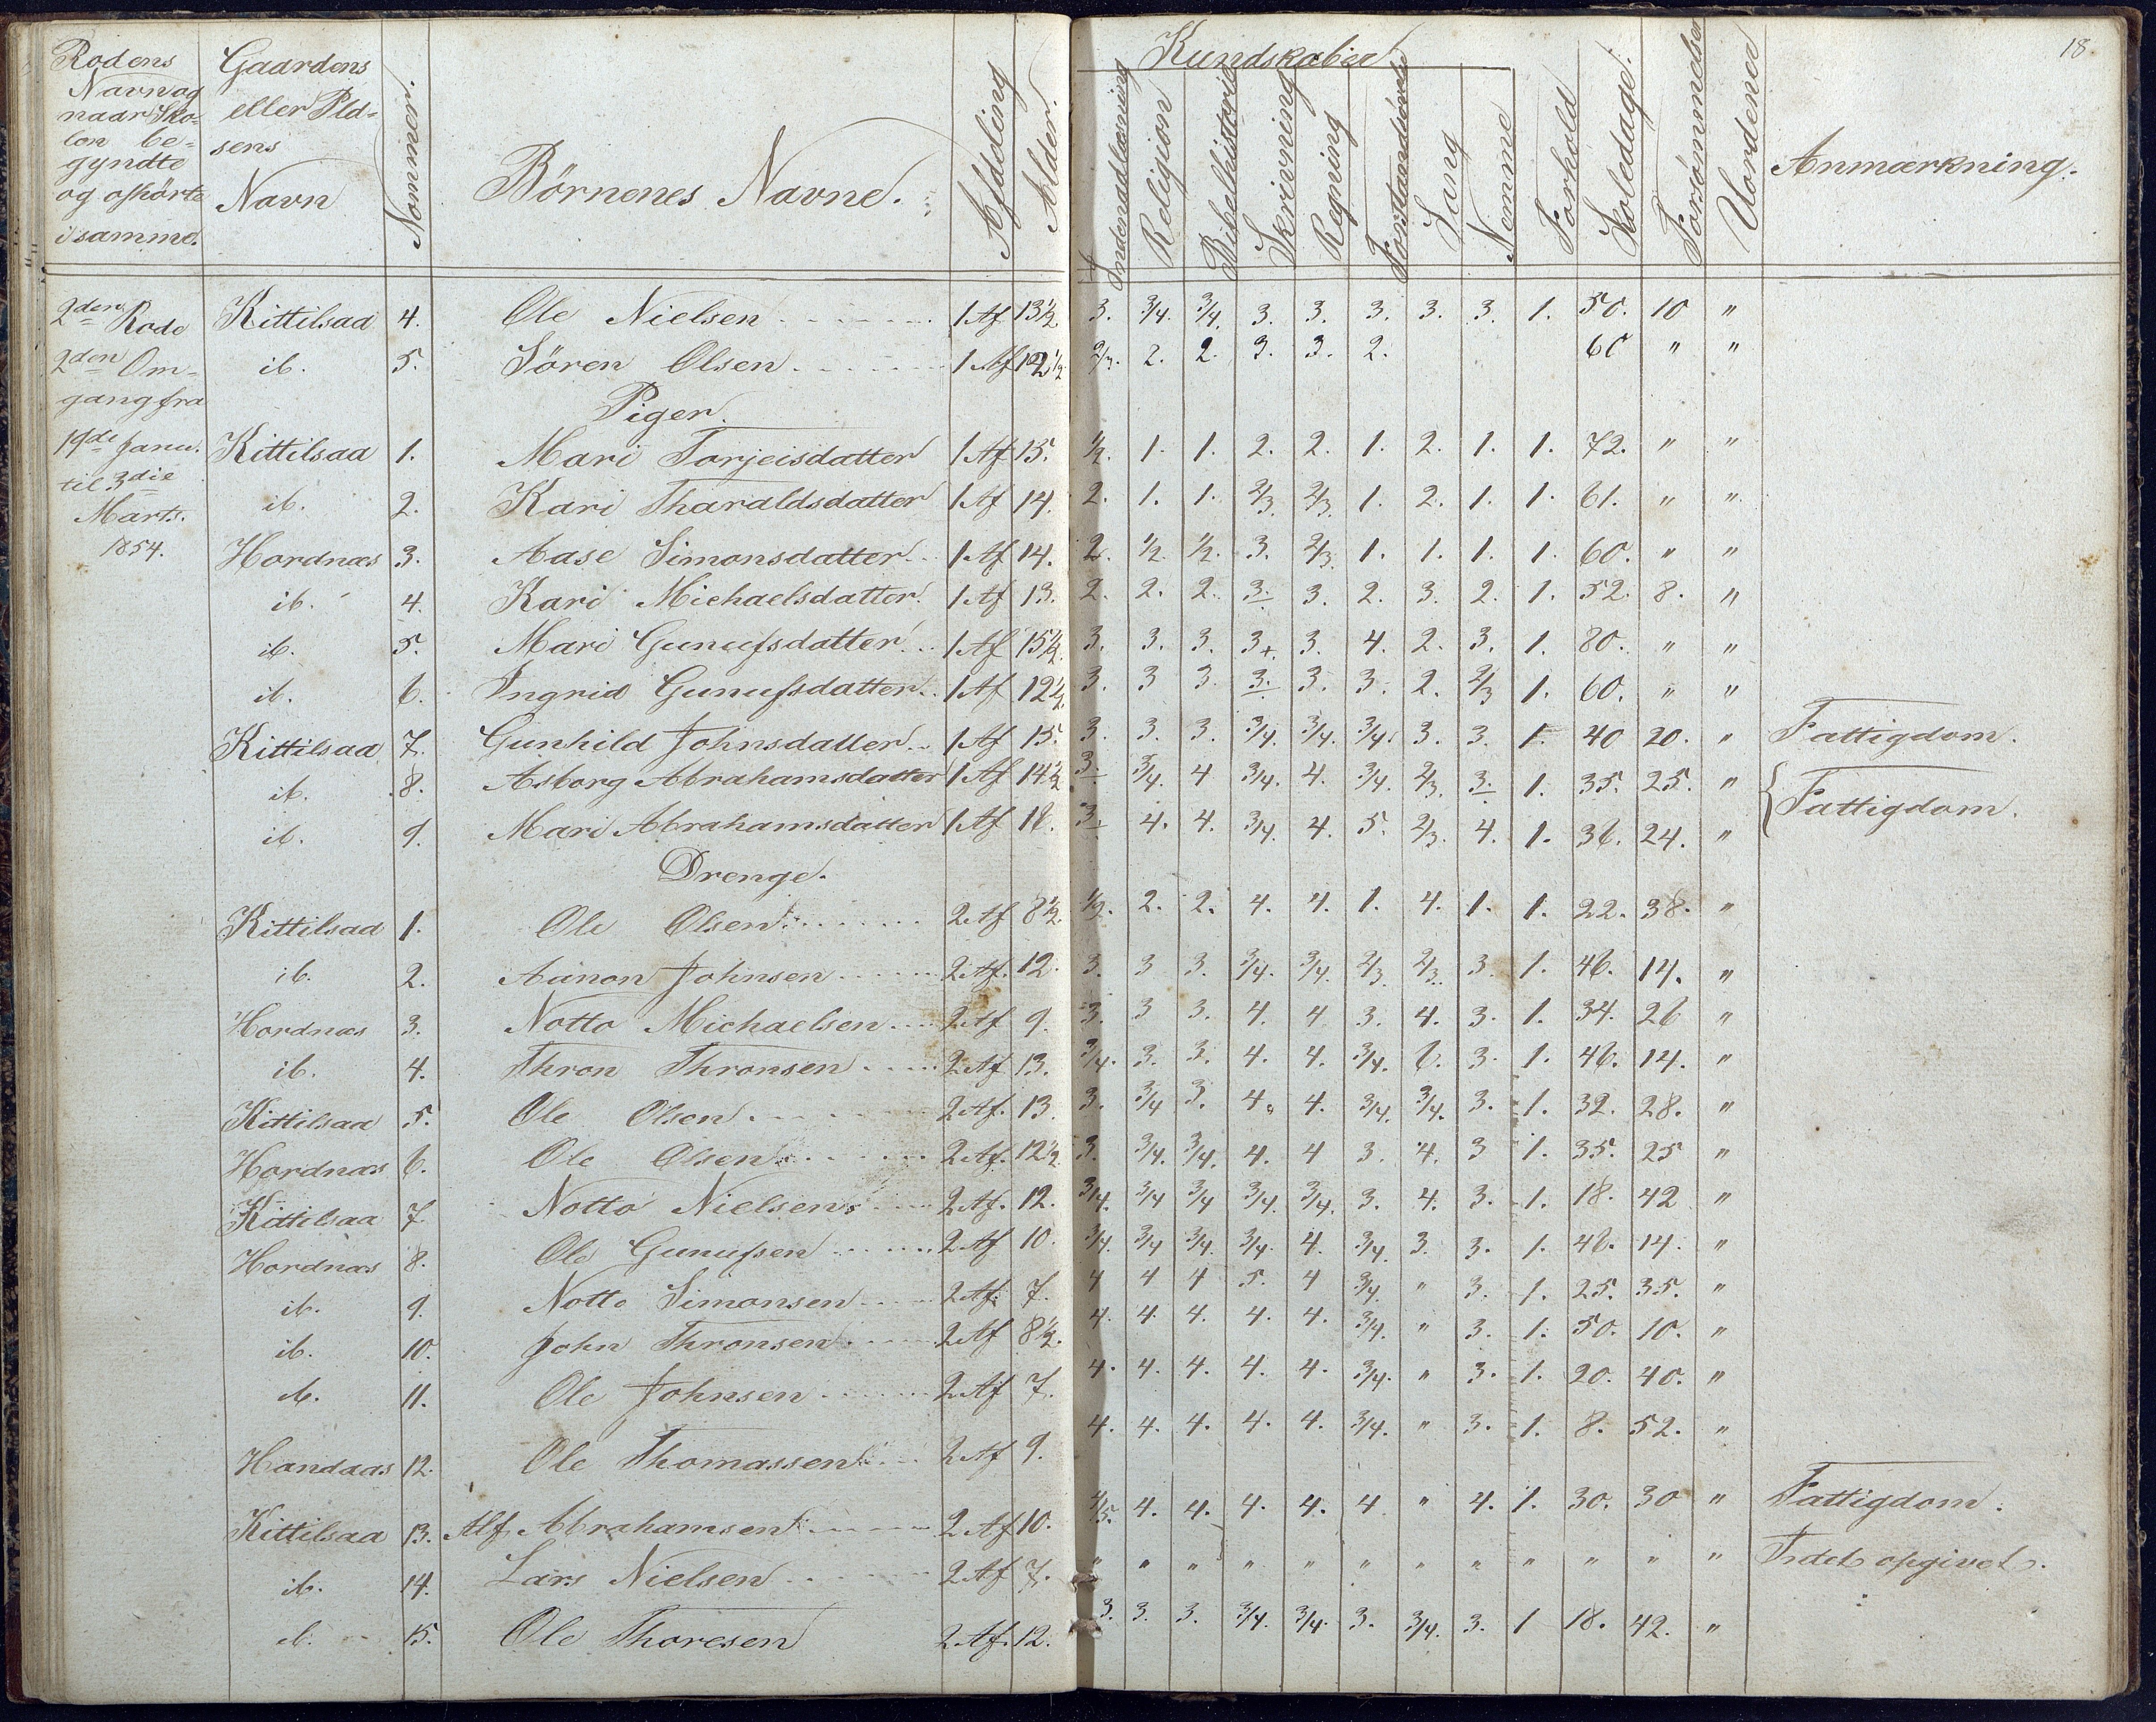 18
Rodens Navn og naar Sko= len be= gyndte og ophörte i samme.
Gaardens eller Plad= sens Navn
Nommer.
Börnenes Navne.
Afdeling
Alder.
Kundskaber
Indenadlæsning
Religion
Bibelhistorie
Skrivning
Regning
Sang
Nemme
Forhold
Skoledage.
Forsømmelser
Uordener
Anmærkning.
2den Rode
2den Om=
gang fra
19de Janu.
til 3die
Marts.
1854.
Kittilsaa 4. Ole Nielsen 1 Af 13½ 3. 3/4. 3/4. 3. 3. 3. 3. 3. 1. 50. 10 "
ib. 5. Sören Olsen 1 Af 12½ 2/3. 2. 2. 3. 3. 2. 60 " "
Piger.
Kittilsaa 1. Mari Torjeisdatter 1 Af 15. ½. 1. 1. 2. 2. 1. 2. 1. 1. 72. " "
ib. 2. Kari Tharaldsdatter 1 Af 14. 2. 1. 1. 2/3. 2/3. 1. 2. 1. 1. 61. " "
Hordnæs 3. Aase Simonsdatter 1 Af 14. 2. ½. ½. 3. 2/3. 1. 1. 1. 1. 60. " "
ib. 4. Kari Michaelsdatter. 1 Af 13. 2. 2. 2. 3. 3. 2. 3. 2. 1. 52. 8. "
ib. 5. Mari Gunufsdatter. 1 Af 15½. 3. 3. 3. 3+. 3. 4. 2. 3. 1. 80. " "
ib. 6. Ingrid Gunufsdatter. 1 Af 12½ 3. 3 3. 3. 3. 3. 2. 2/3 1. 60. " "
Kittilsaa 7. Gunhild Johnsdatter 1 Af 15. 3. 3. 3. 3/4. 3/4. 3/4. 3. 3. 1. 40 20. " Fattigdom.
ib. 8. Asborg Abrahamsdatter 1 Af 14½ 3. 3/4. 4 3/4. 4. 3/4. 2/3. 3. 1. 35. 25. " Fattigdom.
ib. 9. Mari Abrahamsdatter 1 Af 18. 3. 4. 4. 3/4. 4. 5. 2/3. 4. 1. 36. 24. "
Drenge.
Kittilsaa 1. Ole Olsen 2 Af 8½. ½. 2. 2. 4. 4. 1. 4. 1. 1. 22. 38. "
ib. 2. Aanon Johnsen 2 Af. 12. 3. 3 3. 3/4. 3/4. 2/3. 2/3. 3. 1. 46. 14. "
Hordnæs 3. Notto Michaelsen 2 Af 9. 3. 3 3. 4. 4 3. 4. 3. 1. 34. 26 "
ib. 4. Thron Thronsen 2 Af 13. 3/4. 3. 3. 4. 4. 3/4. 6. 3. 1. 46. 14. "
Kittilsaa 5. Ole Olsen 2 Af. 13. 3. 3/4 3. 4. 4. 3/4. 3/4. 3. 1. 32. 28. "
Hordnæs 6. Ole Olsen 2 Af. 12½. 3. 3/4. 3/4. 4. 4 3. 4. 3 1. 35. 25 "
Kittilsaa 7. Notto Nielsen 2 Af. 12. 3/4. 3/4 3/4 3/4. 3/4. 3. 4. 3. 1. 18. 42 "
Hordnæs 8. Ole Gunufsen 2 Af 10. 3/4. 3/4 3/4. 3/4. 4. 3/4. 3. 3. 1. 46. 14. "
ib. 9. Notto Simonsen 2 Af. 7. 4 4 4 5. 4 3/4. " 3. 1. 25. 35. "
ib. 10. John Thronsen 2 Af 8½. 4. 4. 4. 4. 4. 3/4. " 3. 1. 50. 10. "
ib. 11. Ole Johnsen 2 Af 7. 4. 4. 4. 4. 4. 3/4. " 3. 1. 20. 40. "
Handaas 12. Ole Thomassen 2 Af 9. 4. 4. 4. 4. 4. 3/4. " 3. 1. 8. 52. "
Kittilsaa 13. Alf Abrahamsen 2 Af 10. 4/5. 4. 4. 4. 4. 4 " 4. 1. 30. 30 " Fattigdom.
ib. 14. Lars Nielsen 2 Af 7. " " " " " " " " " " " " Intet opgivet.
ib. 15. Ole Thoresen 2 Af. 12. 3. 3. 3. 3/4. 3/4. 3. 3/4. 3. 1 18. 42. "